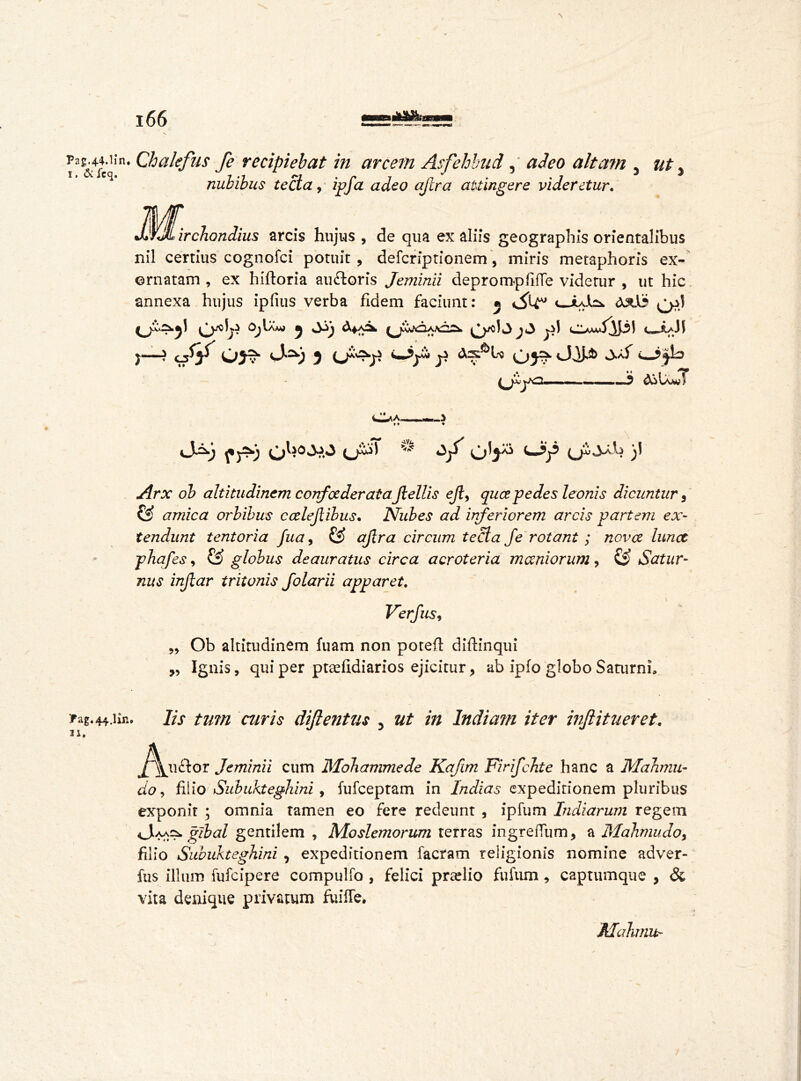 166
Pag.44.lin. Chalefus ſe recipiebat in arcem Asfehbud, adeo altam, ut,
1. & ſeq.
nubibus tecta, ipſa adeo aſtra attingere videretur.
Mirchondius arcis hujus, de qua ex aliis geographis orientalibus
nil certius cognoſci potuit, deſcriptionem, miris metaphoris ex-
ornatam, ex hiſtoria auctoris Jeminii deprompſiſſe videtur, ut hic
annexa hujus ipſius verba fidem faciunt:
Arx ob altitudinem confœderata ſtellis eſt, quæ pedes leonis dicuntur,
& amica orbibus cæleſtibus. Nubes ad inferiorem arcis partem ex-
tendunt tentoria ſua, & aſtra circum tecta ſe rotant; novæ lunæ
phaſes, & globus deauratus circa acroteria mœniorum, & Satur-
nus inſtar tritonis ſolarii apparet.
Verſus,
„ Ob altitudinem ſuam non poteſt diſtinqui
„ Ignis, qui per ptæſidiarios ejicitur, ab ipſo globo Saturni.
Pag.44.lin. Iis tum curis diſtentus, ut in Indiam iter inſtitueret.
21.
Auctor Jeminii cum Mohammede Kaſim Firiſchte hanc a Mahmu-
do, filio Subukteghini, ſuſceptam in Indias expeditionem pluribus
exponit; omnia tamen eo fere redeunt, ipſum Indiarum regem
جيبال gibal gentilem, Moslemorum terras ingreſſum, a Mahmudo,
filio Subukteghini, expeditionem ſacram religionis nomine adver-
ſus illum ſuſcipere compulſo, felici prælio fuſum, captumque, &
vita denique privatum fuiſſe.
Mahmu-